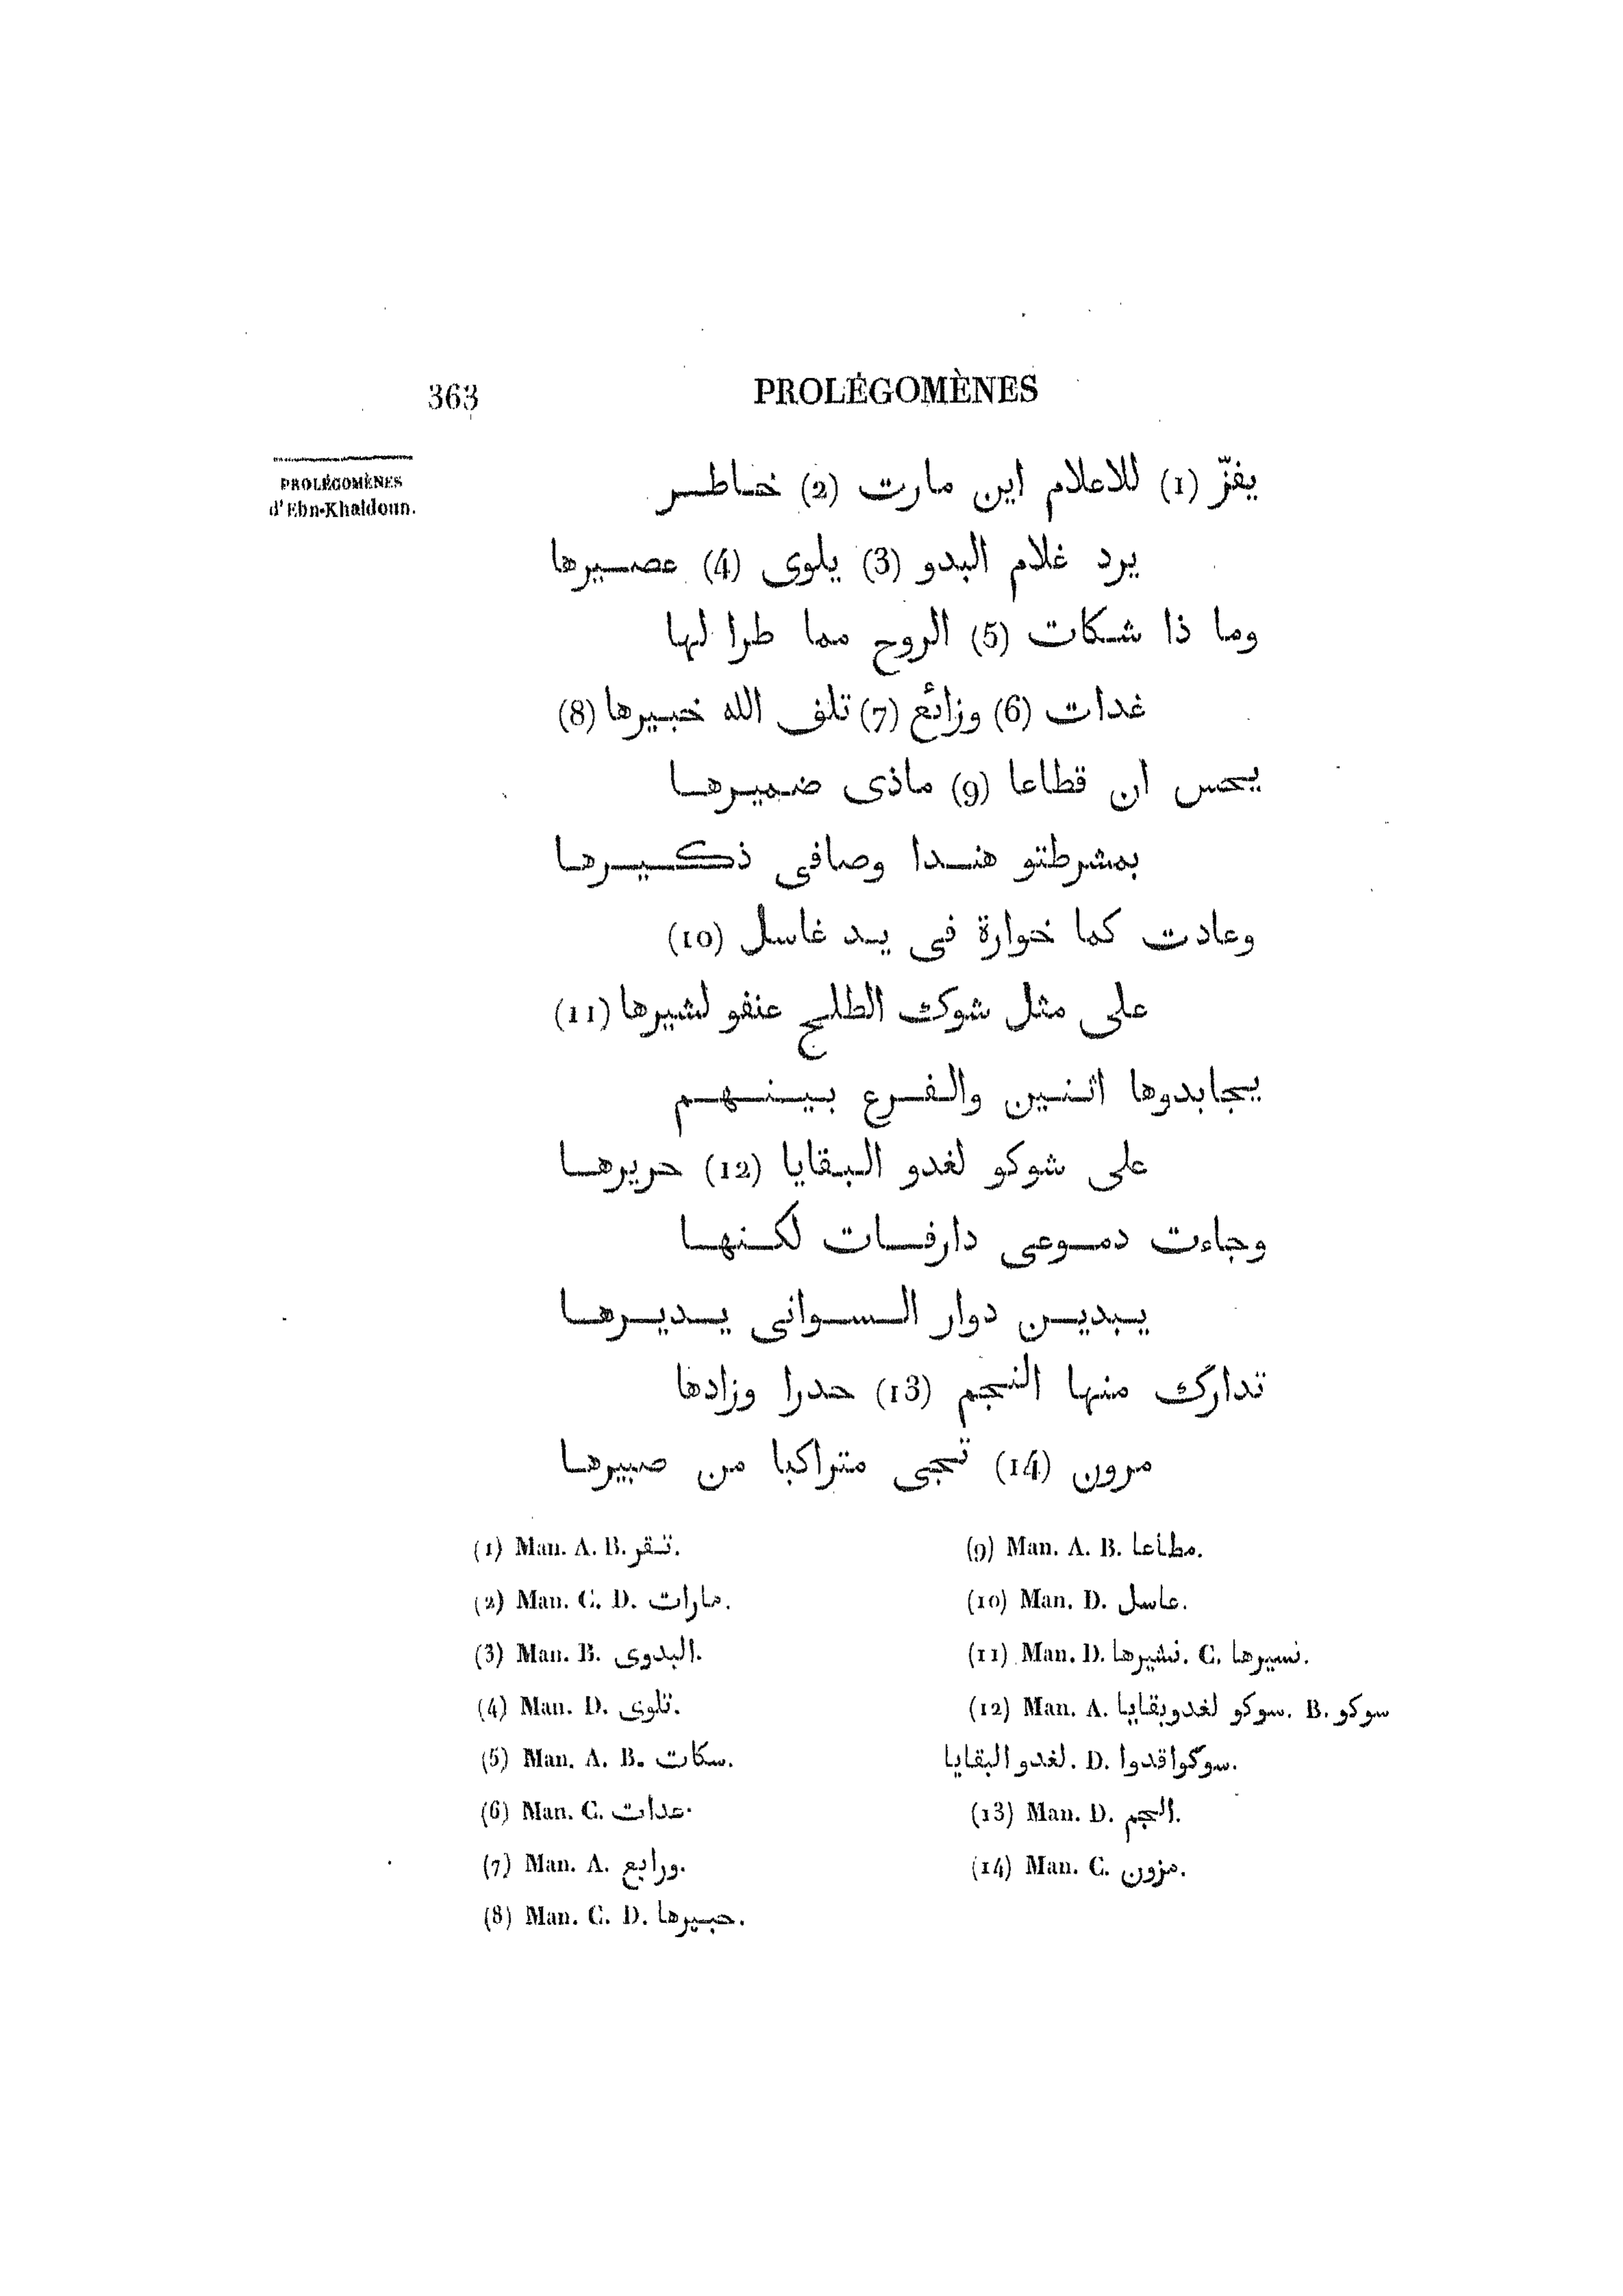 363
PROLÉGOMÈNES
PROLÉGOMÈNES
d'Ebn-Khaldoun.
يفزّ (1) للاعلام اين مارت (2) خاطر
يرد غلام البدو (3) يلوى (4) عصيرها
وما ذا شكات (5) الروح مما طرا لها
غدات (6) وزائع (7) تلف الله خبيرها (8)
يحس ان قطاعا (9) ماذى ضميرها
بمشرطتو هندا وصافى ذكيرها
وعادت كما خوارة فى يد غاسل (10)
على مثل شوك الطلح عنفو لشيرها (11)
يجابدوها اثنين والفرع بينهم
على شوكو لغدو البقايا (12) حريرها
وجاءت دموعى دارفات لكنها
يبدين دوار السوانى يديرها
تدارك منها النجم (13) حدرا وزادها
مرون (14) تجى متراكبا من صبيرها
(1) Man. A. B. تنقر.
(2) Man. C. D. مارات.
(3) Man. B. البدوى.
(4) Man. D. تلوى.
(5) Man. A. B. سكات.
(6) Man. C. عدات.
(7) Man. A. ورابع.
(8) Man. C. D. حبيرها.
(9) Man. A. B. مطاعا.
(10) Man. D. عاسل.
(11) Man. D. نشيرها. C. نسيرها.
(12) Man. A. سوكو لغدوبقايا. B. سوكو
لغدو البقايا. D. سوكواقدوا.
(13) Man. D. الحجم.
(14) Man. C. مزون.